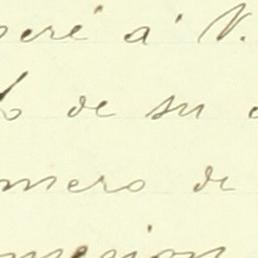 peré á V.
o de su
mero de